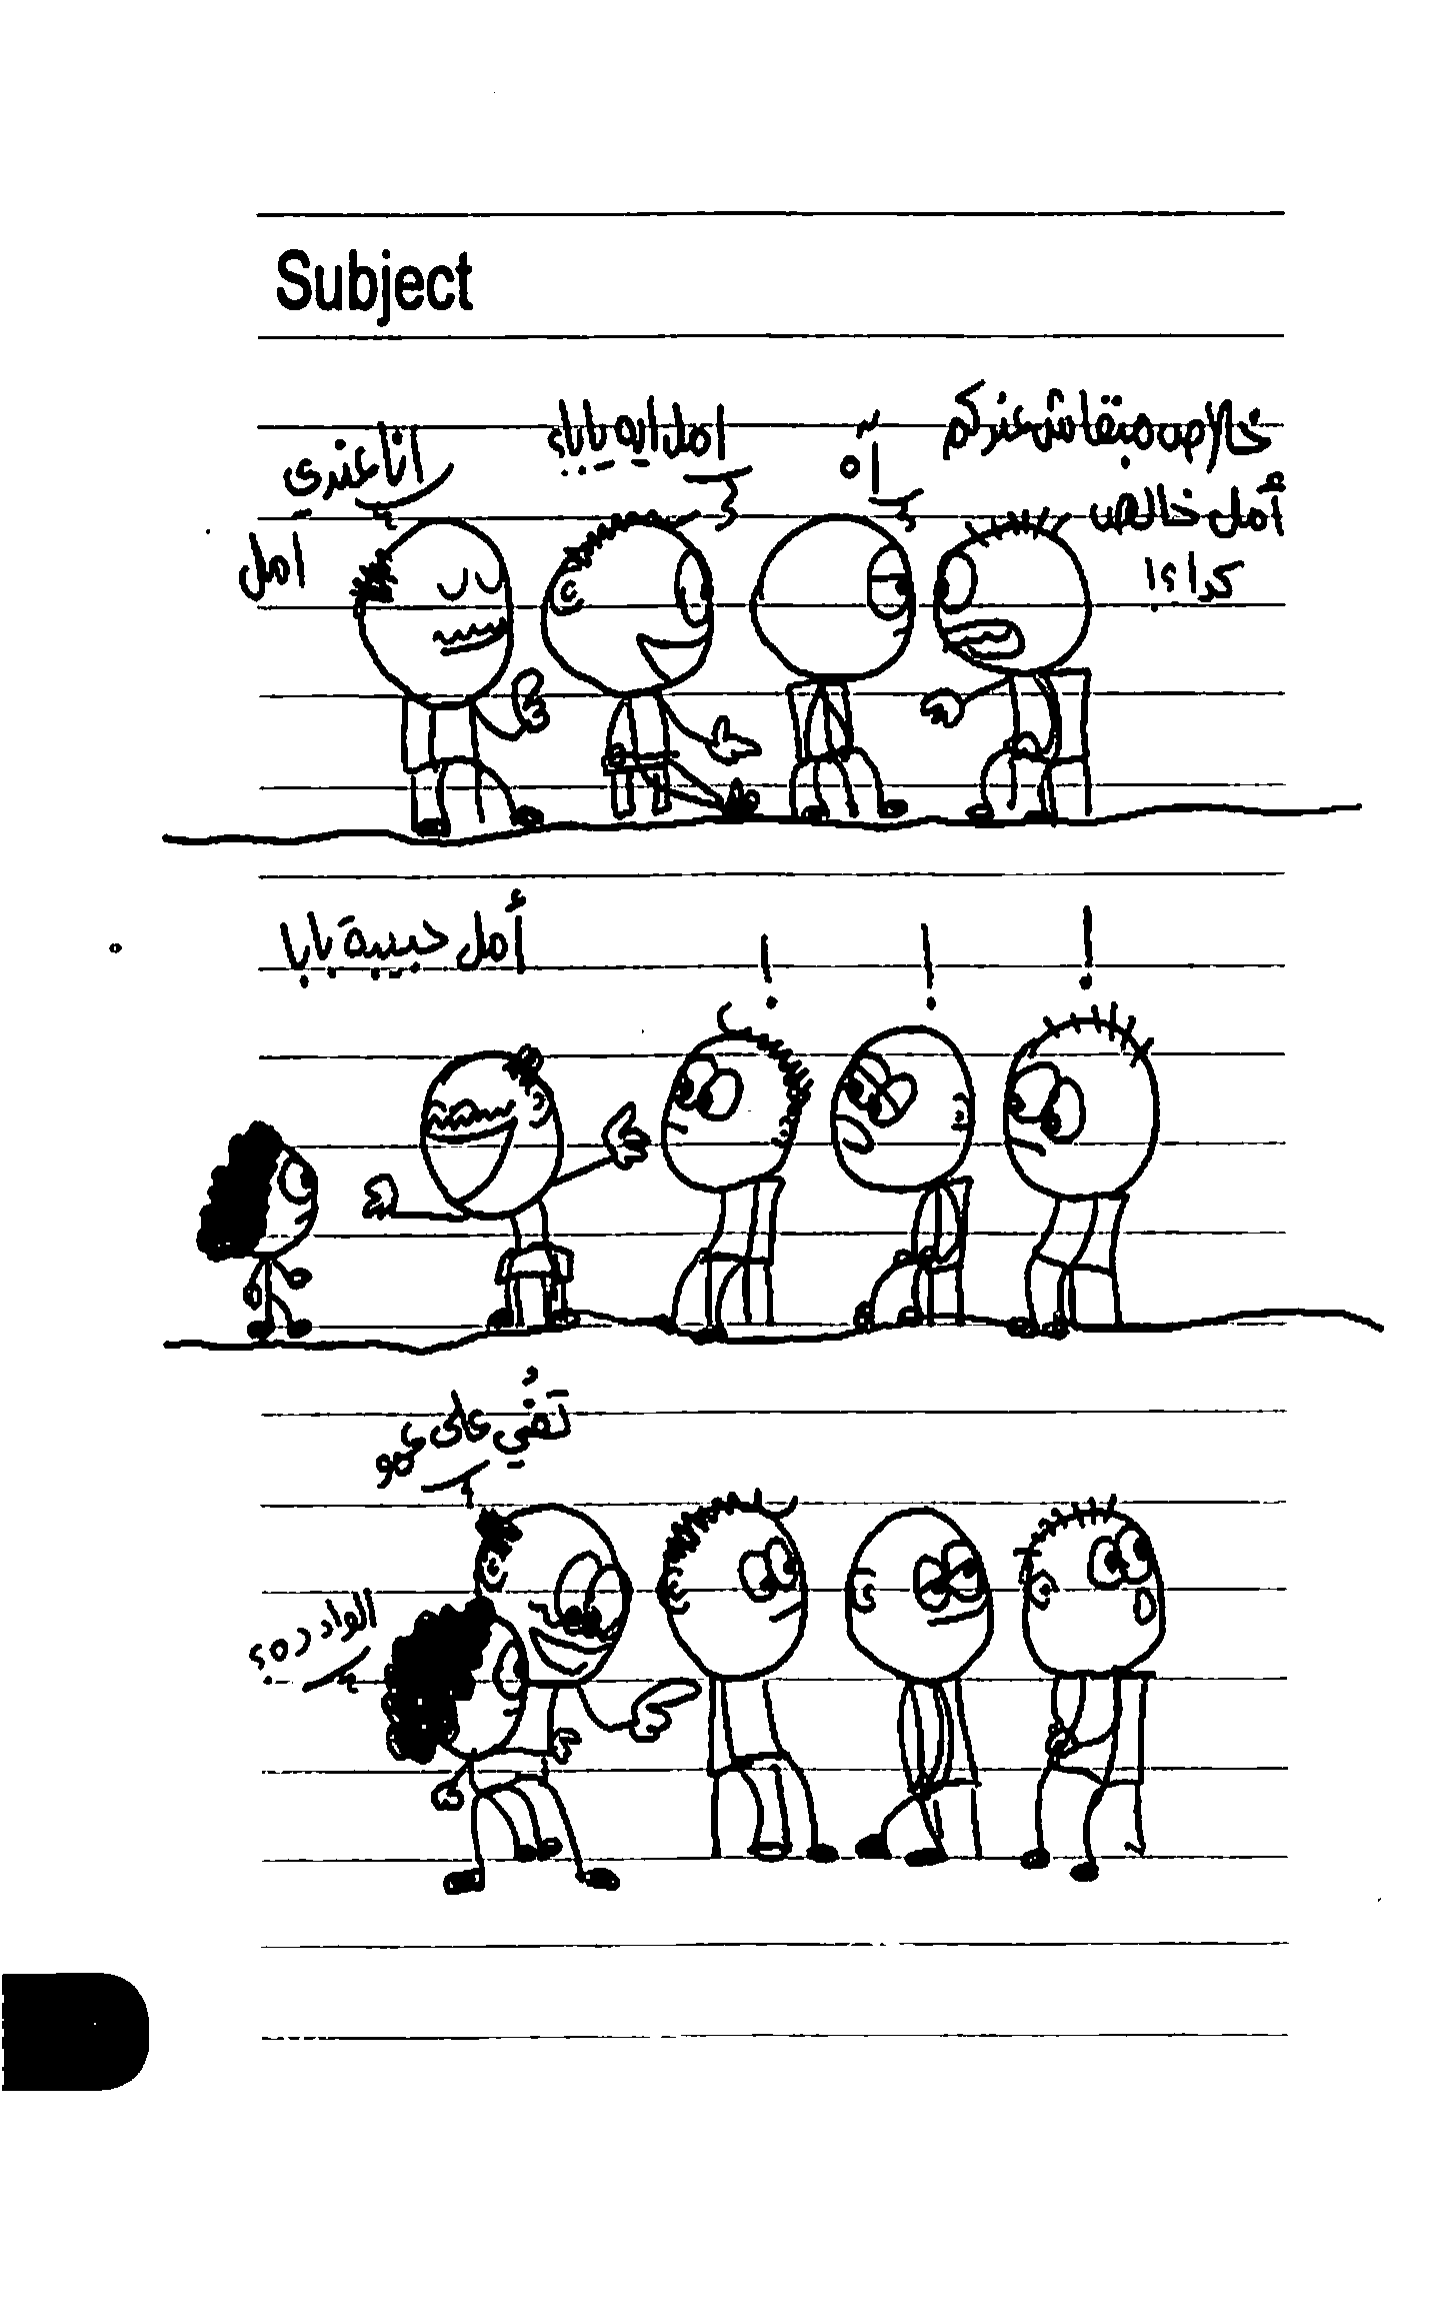 Subject
خلاص مبقاش عندكم
أمل خالص
كدا ؟!
آه
امل ايه يابا؟
انا عندي
امل
أمل حبيبة بابا
!
!
!
تفي على عمو
الواد ده؟